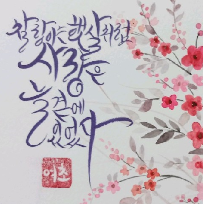 찰랑이는 햇살처럼
사랑은
늘 곁에
있었다